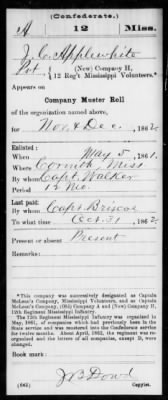 (Confederate.)
A 12 Miss.
J. C. Applewhite
Pvt., (New) Company H,
12 Reg't Mississippi Volunteers.*
Appears on
Company Muster Roll
of the organization named above,
for Nov & Dec, 186
Enlisted:
When May 5, 1861.
Where Corinth Miss
By whom Capt. Walker
Period 12 Mo.
Last paid:
By whom Capt Briscoe
To what time Oct. 31, 186
Present or absent Present
Remarks:
*This company was successively designated as Captain
McLean's Company, Volunteers, and as Captain
McLean's Company, (Old) Company A and (New) Company H,
12th Regiment Mississippi Infantry.
The 12th Regiment Mississippi Infantry was organized in
May, 1861, of companies which had previously been in the
State service and was mustered into the Confederate service
About April, 1862, the regiment was re-
organized and the letters of its companies, except D, were
changed.
Book mark:
J B Dowd
(642) Copyist.